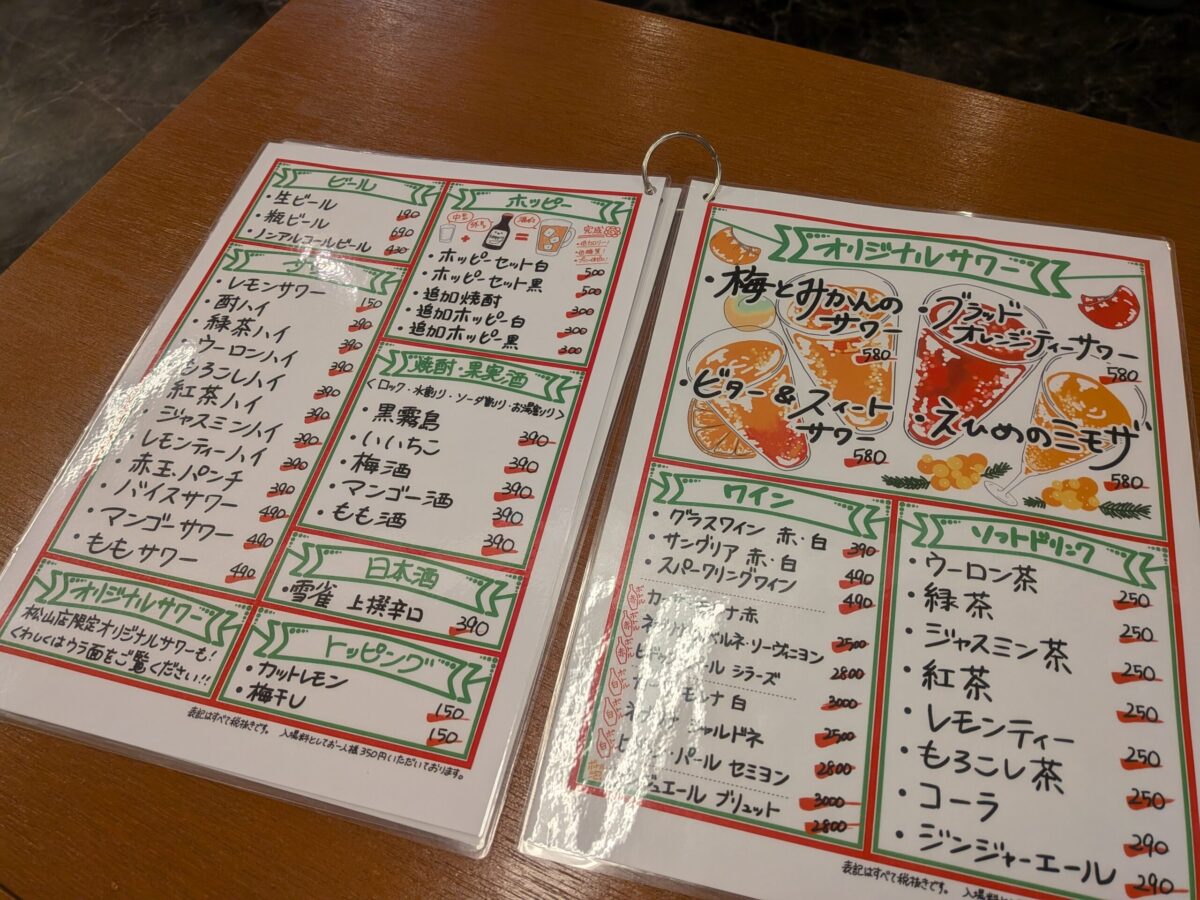 ビール
・生ビール 190
・瓶ビール 690
・ノンアルコールビール 430
レモンサワー 150
・酎ハイ 390
・緑茶ハイ 390
・ウーロンハイ 390
・もろこしハイ 390
・紅茶ハイ 390
・ジャスミンハイ 390
・レモンティーハイ 390
・赤玉パンチ 390
・バイスサワー 490
・マンゴーサワー 490
・ももサワー 490
オリジナルサワー
松山店限定オリジナルサワーも!
くわしくはウラ面をご覧ください!!
ホッピー
+ =
完成
・ホッピーセット白 500
・ホッピーセット黒 500
・追加焼酎 300
・追加ホッピー白 300
・追加ホッピー黒 300
焼酎・果実酒
<ロック・水割り・ソーダ割り・お湯割り>
・黒霧島 390
・いいちこ 390
・梅酒 390
・マンゴー酒 390
・もも酒 390
日本酒
・雪雀 上撰辛口 390
トッピング
・カットレモン 150
・梅干し 150
表記はすべて税抜きです。 入場料としてお一人様350円いただいております。
オリジナルサワー
・梅とみかんの
サワー
580
・ブラッド
オレンジティーサワー
580
・ビター&スィート
サワー
580
・えひめのミモザ
580
ワイン
・グラスワイン 赤・白 390
・サングリア 赤・白 490
・スパークリングワイン 490
赤
カベルネ・リーヴィニヨン 2500
パール シラーズ 2800
モレナ 白 3000
シャルドネ 2500
パール セミヨン 2800
ジュエール ブリュット 3000
2800
ソフトドリンク
・ウーロン茶 250
・緑茶 250
・ジャスミン茶 250
・紅茶 250
・レモンティー 250
・もろこし茶 250
・コーラ 290
・ジンジャーエール 290
表記はすべて税抜きです。 入場料として